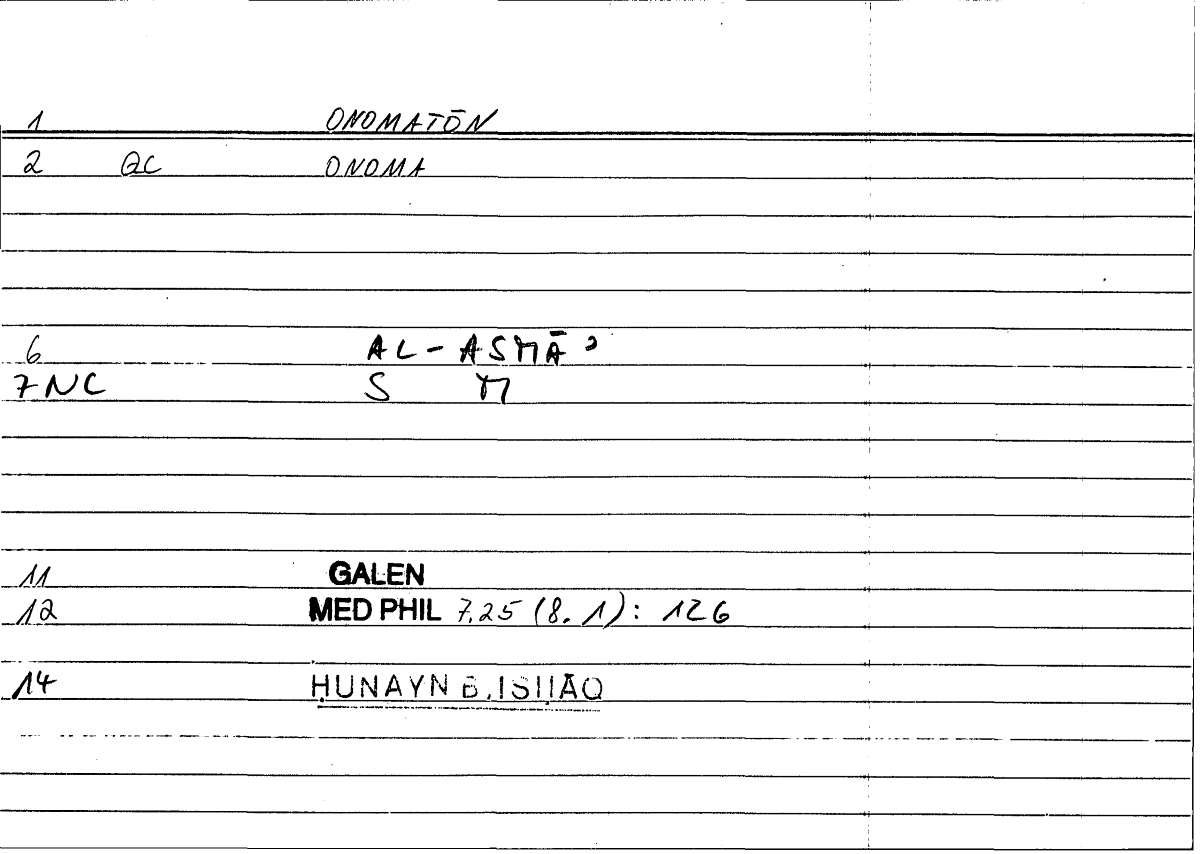 1 ONOMATŌN
2 QC ONOMA
6 AL-ASMĀʾ
7 NC S M
11 GALEN
12 MED PHIL 7.25 (8.1): 126
14 ḤUNAYN B. ISḤĀQ